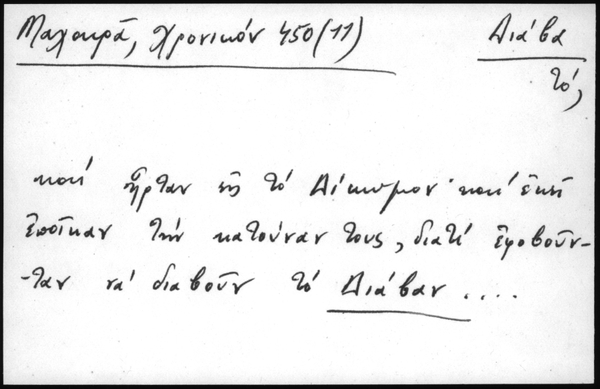 Μαχαιρᾶ, Χρονικόν 450(11)
Διάβα
τό,
καί ἦρταν εἰς τό Δίκωμον· καί ἐκεῖ
ἐποῖκαν τήν κατούναν τους, διατί ἐφοβοῦν-
-ταν νά διαβοῦν τό Διάβαν ....